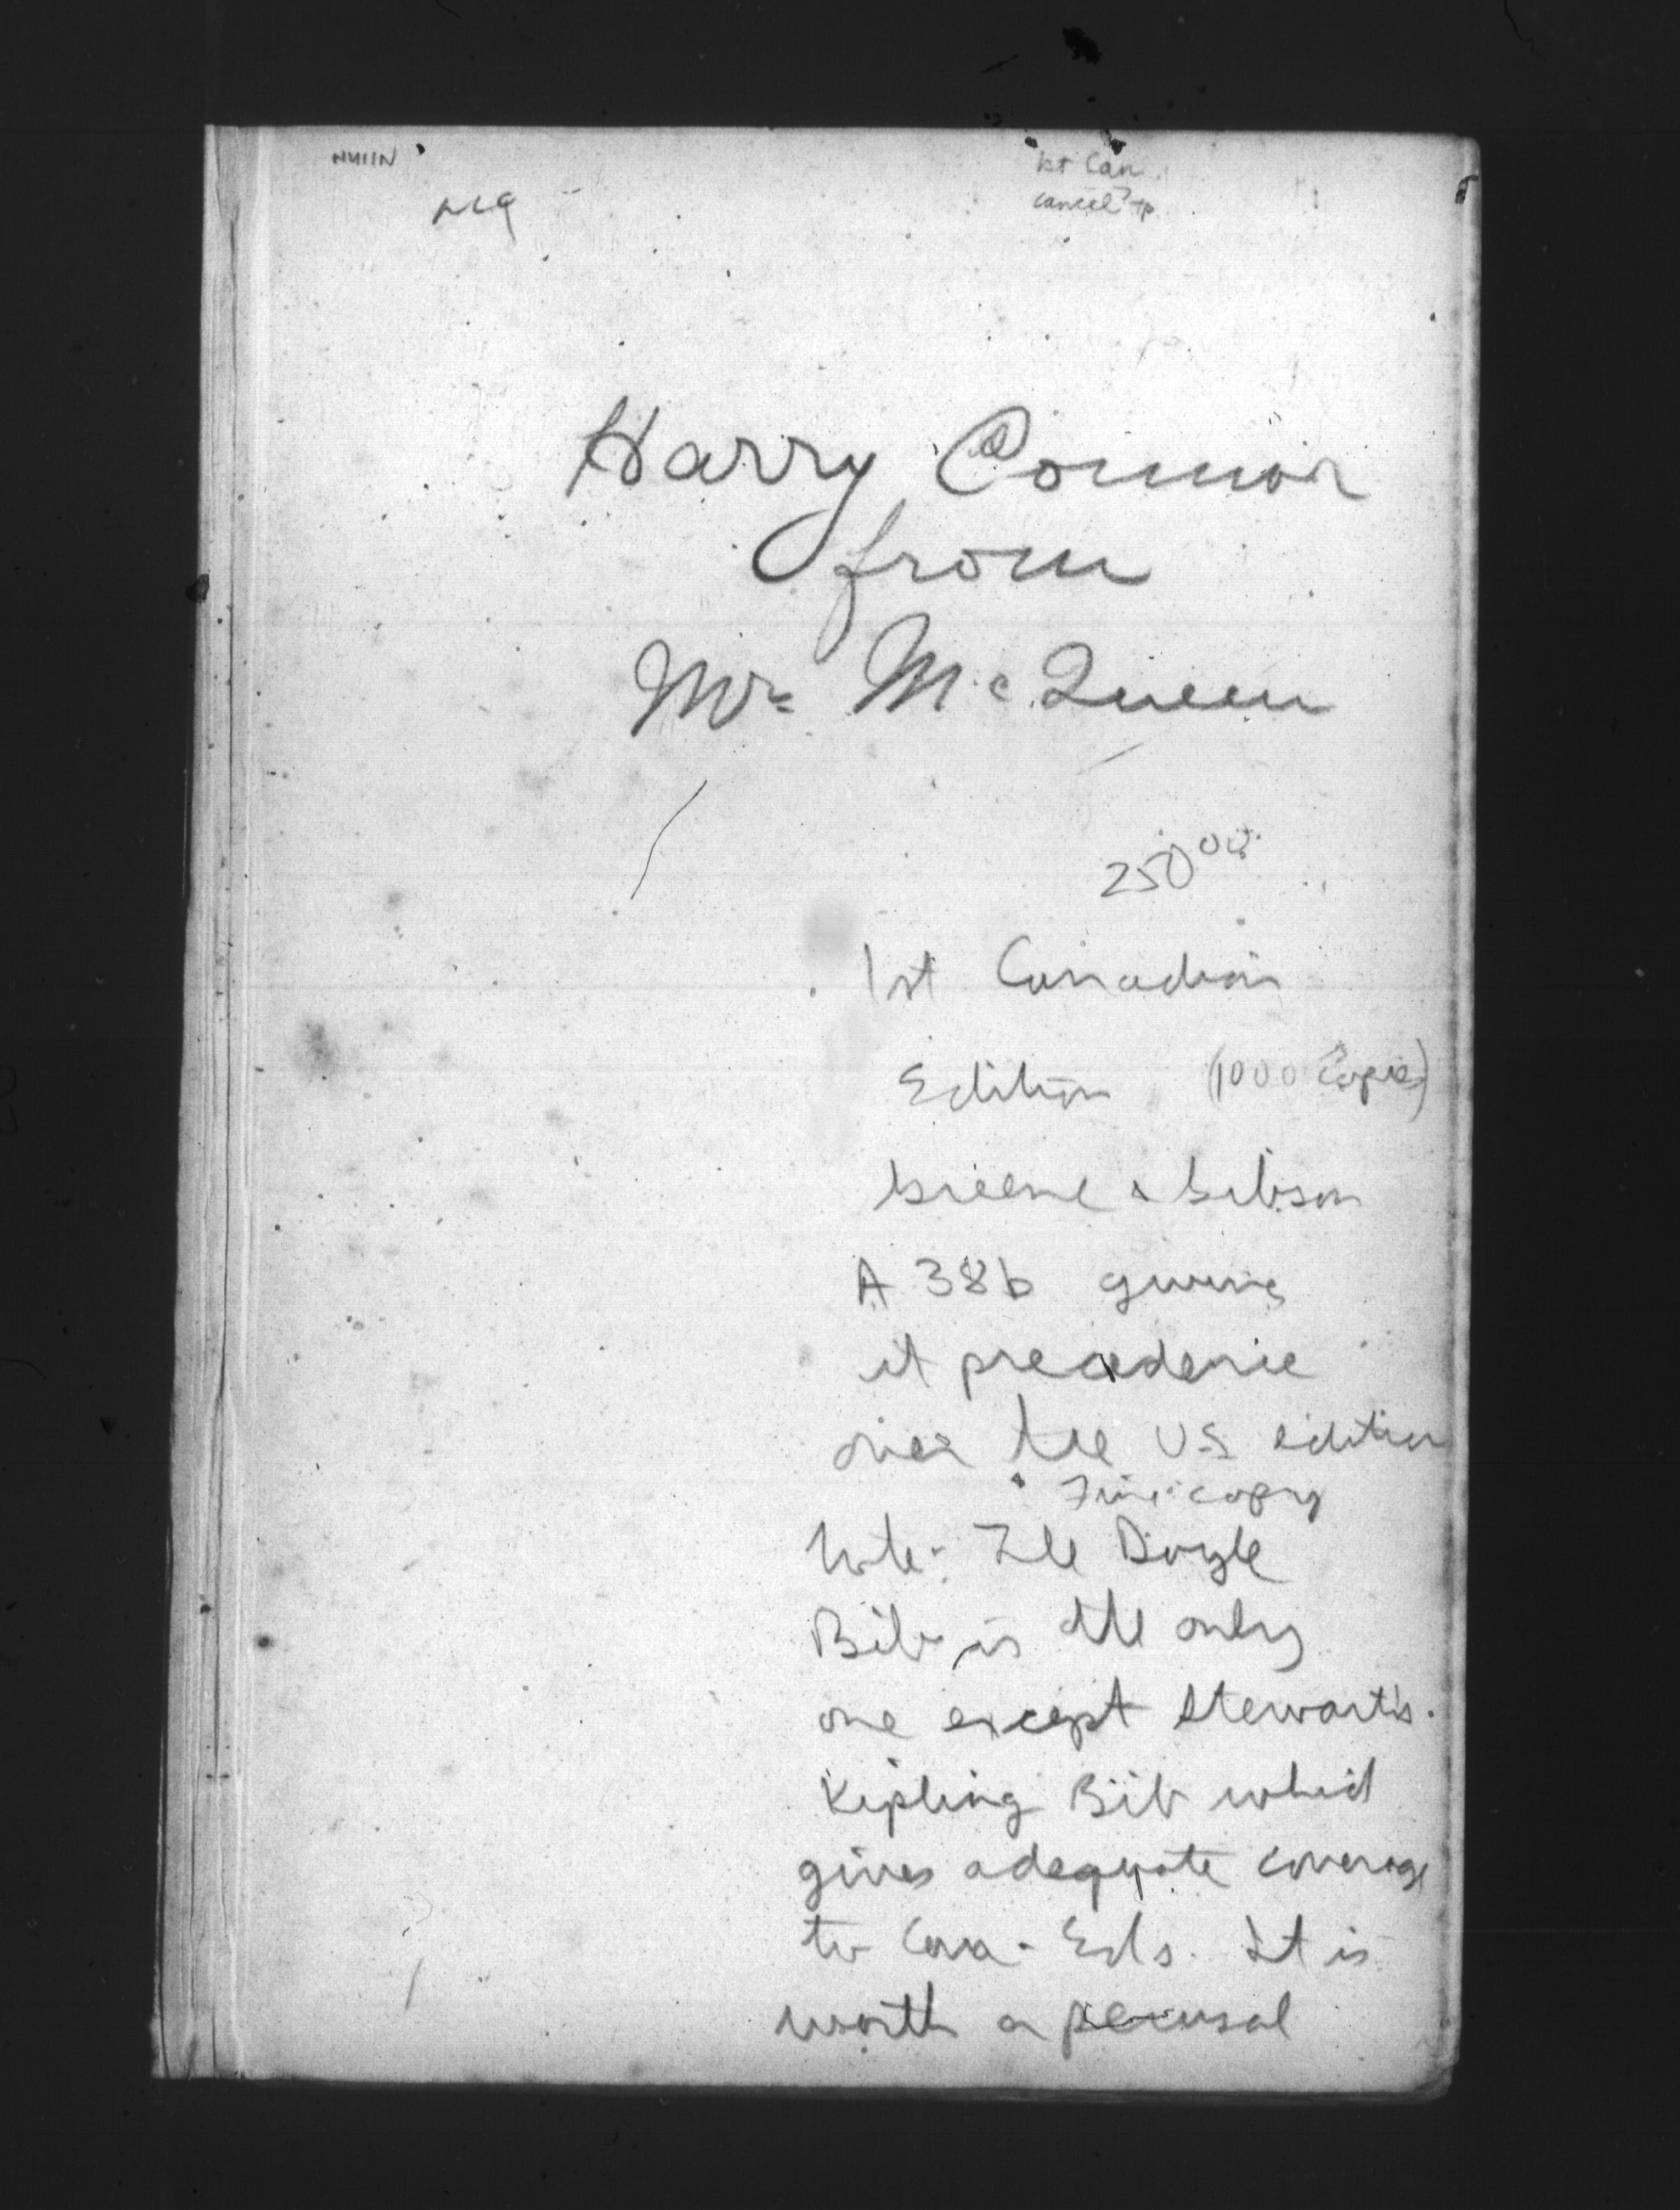 1st Can
cancel? tp
Harry Connor
from
Mrs McQueen
250⁰⁰
1st Canadian
Edition (1000 Copies)
Greene & Gibson
A 38b giving
it precedence
over the US edition
Fine copy
Note - The Doyle
Bib is the only
one except Stewart's
Kipling Bib which
gives adequate coverage
to Can. Eds. It is
worth a perusal